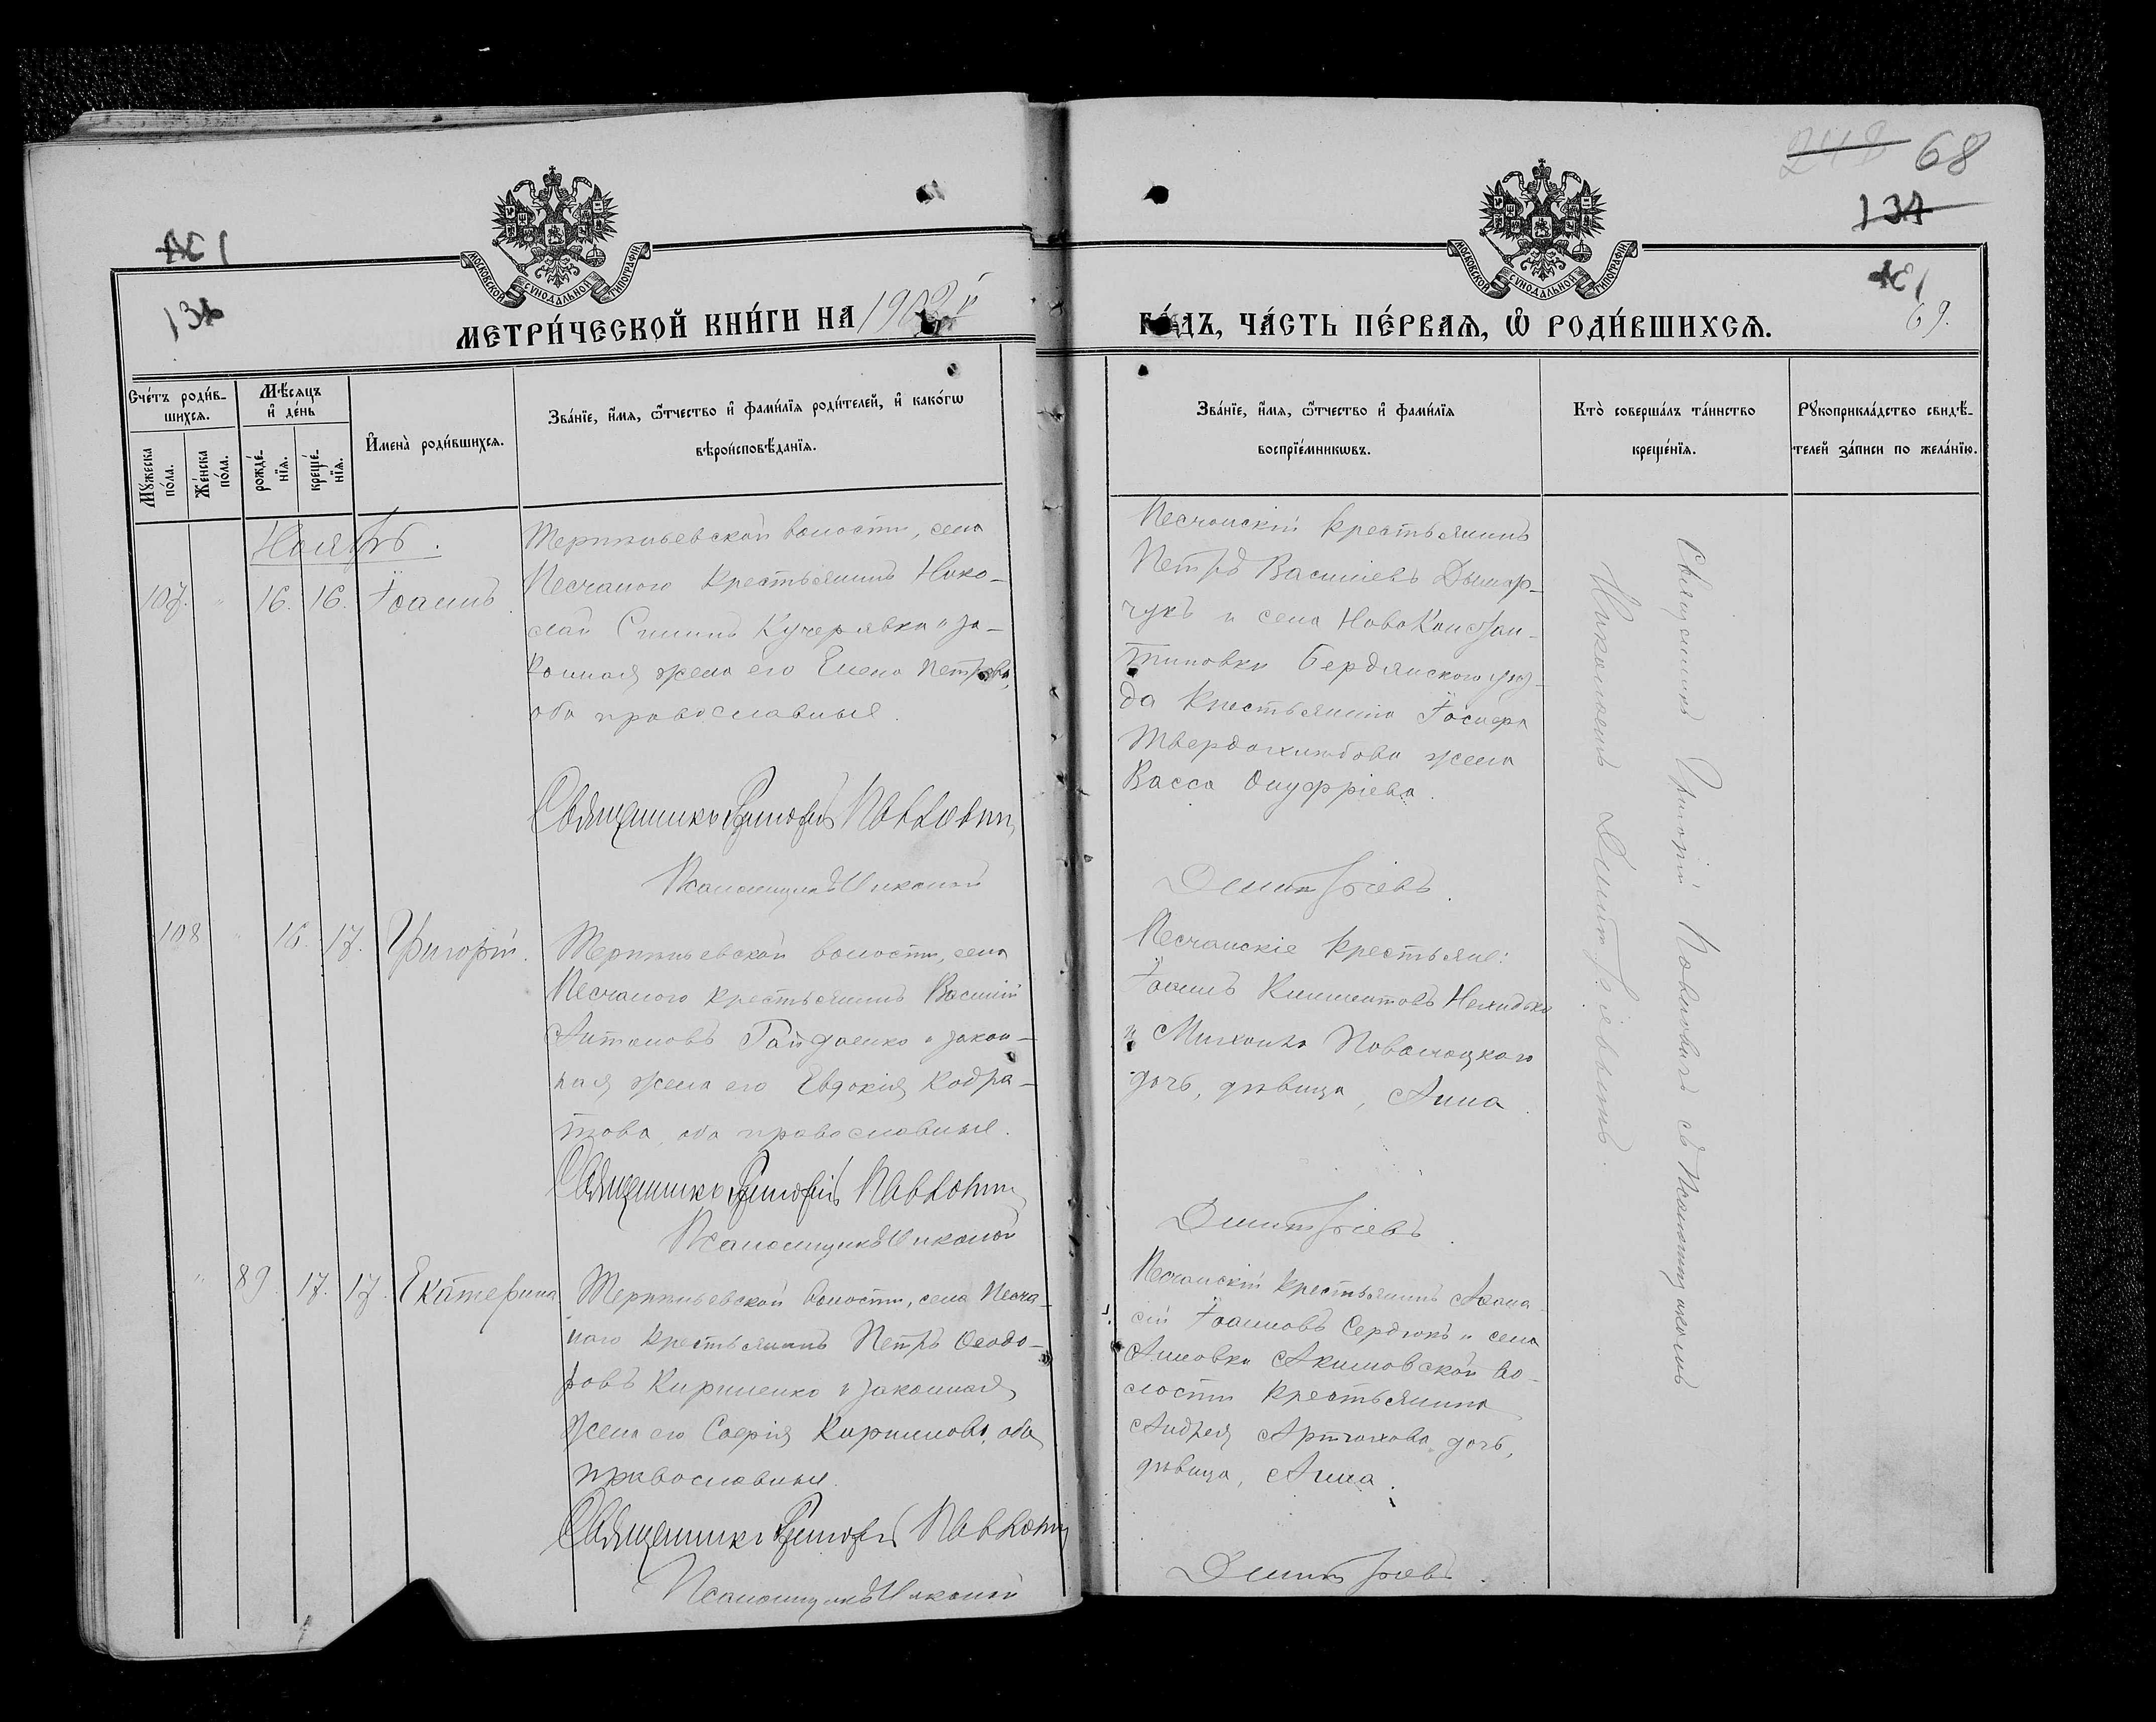 68
АС 1
МОСКОВСКОЙ СѴНОДАЛЬНОЙ ТИПОГРАФІИ
МОСКОВСКОЙ СѴНОДАЛЬНОЙ ТИПОГРАФІИ
МЕТРИ́ЧЕСКОЙ КНИ́ГИ НА
ГО́ДЪ, ЧА́СТЬ ПЕ́РВАѦ, Ѿ РОДИ́ВШИХСѦ.
69.
Сче́тъ роди́в-
шихсѧ.
Мꙋжеска
по́ла.
Же́нска
по́ла.
Мѣ́сѧцъ
и҆ де́нь
рожде́-
нїѧ.
креще́-
нїѧ.
И҆мена̀ роди́вшихсѧ.
Зва́нїе, и҆́мѧ, ѻ҆́тчество и҆ фами́лїѧ роди́телей, и҆ како́гѡ
вѣроисповѣ́данїѧ.
Зва́нїе, и҆́мѧ, ѻ҆́тчество и҆ фами́лїѧ
воспрїе́мникѡвъ.
Кто̀ соверша́лъ та́инство
креще́нїѧ.
Рꙋкоприкла́дство свидѣ́-
телей за́писи по жела́нїю.
Ноябрь.
107. " 16. 16. Іоаннъ.
Терпѣньевской волости, села
Песчаного крестьянинъ Нико-
лай Кучерявка и за-
конная жена его Елена Петрова,
оба православные.
Священникъ Григорій Павловичъ
Псаломщикъ Николай
Песчанскій крестьянинъ
Петръ Васильевъ Дымар-
чукъ и села НовоКонстан-
тиновки Бердянскаго уѣз-
да крестьянина Іосифа
Твердохлѣбова жена
Васса Онуфріева.
Дмитріевъ.
Священникъ Григорій Павловичъ съ Псаломщикомъ
Николаемъ Дмитріевымъ.
108 " 16. 17. Григорій.
Терпѣньевской волости, села
Песчаного крестьянинъ Василій
Антоновъ Гайдаенко и закон-
ная жена его Евдокія Кодра-
това, оба православные.
Священникъ Григорій Павловичъ
Псаломщикъ Николай
Песчанскіе крестьяне:
Іоаннъ Климентовъ
и Михаила Поволоцкаго
дочь, дѣвица, Анна.
Дмитріевъ.
" 89. 17. 17. Екатерина
Терпѣньевской волости, села Песча-
ного крестьянинъ Петръ Ѳеодо-
ровъ Кириленко и законная
жена его Софія Кириллова, оба
православные.
Священникъ Григорій Павловичъ
Псаломщикъ Николай
Песчанскій крестьянинъ Аѳана-
сій Іоанновъ Сердюкъ и села
Анновки Акимовской во-
лости крестьянина
Андрея Артюхова дочь,
дѣвица, Анна.
Дмитріевъ.